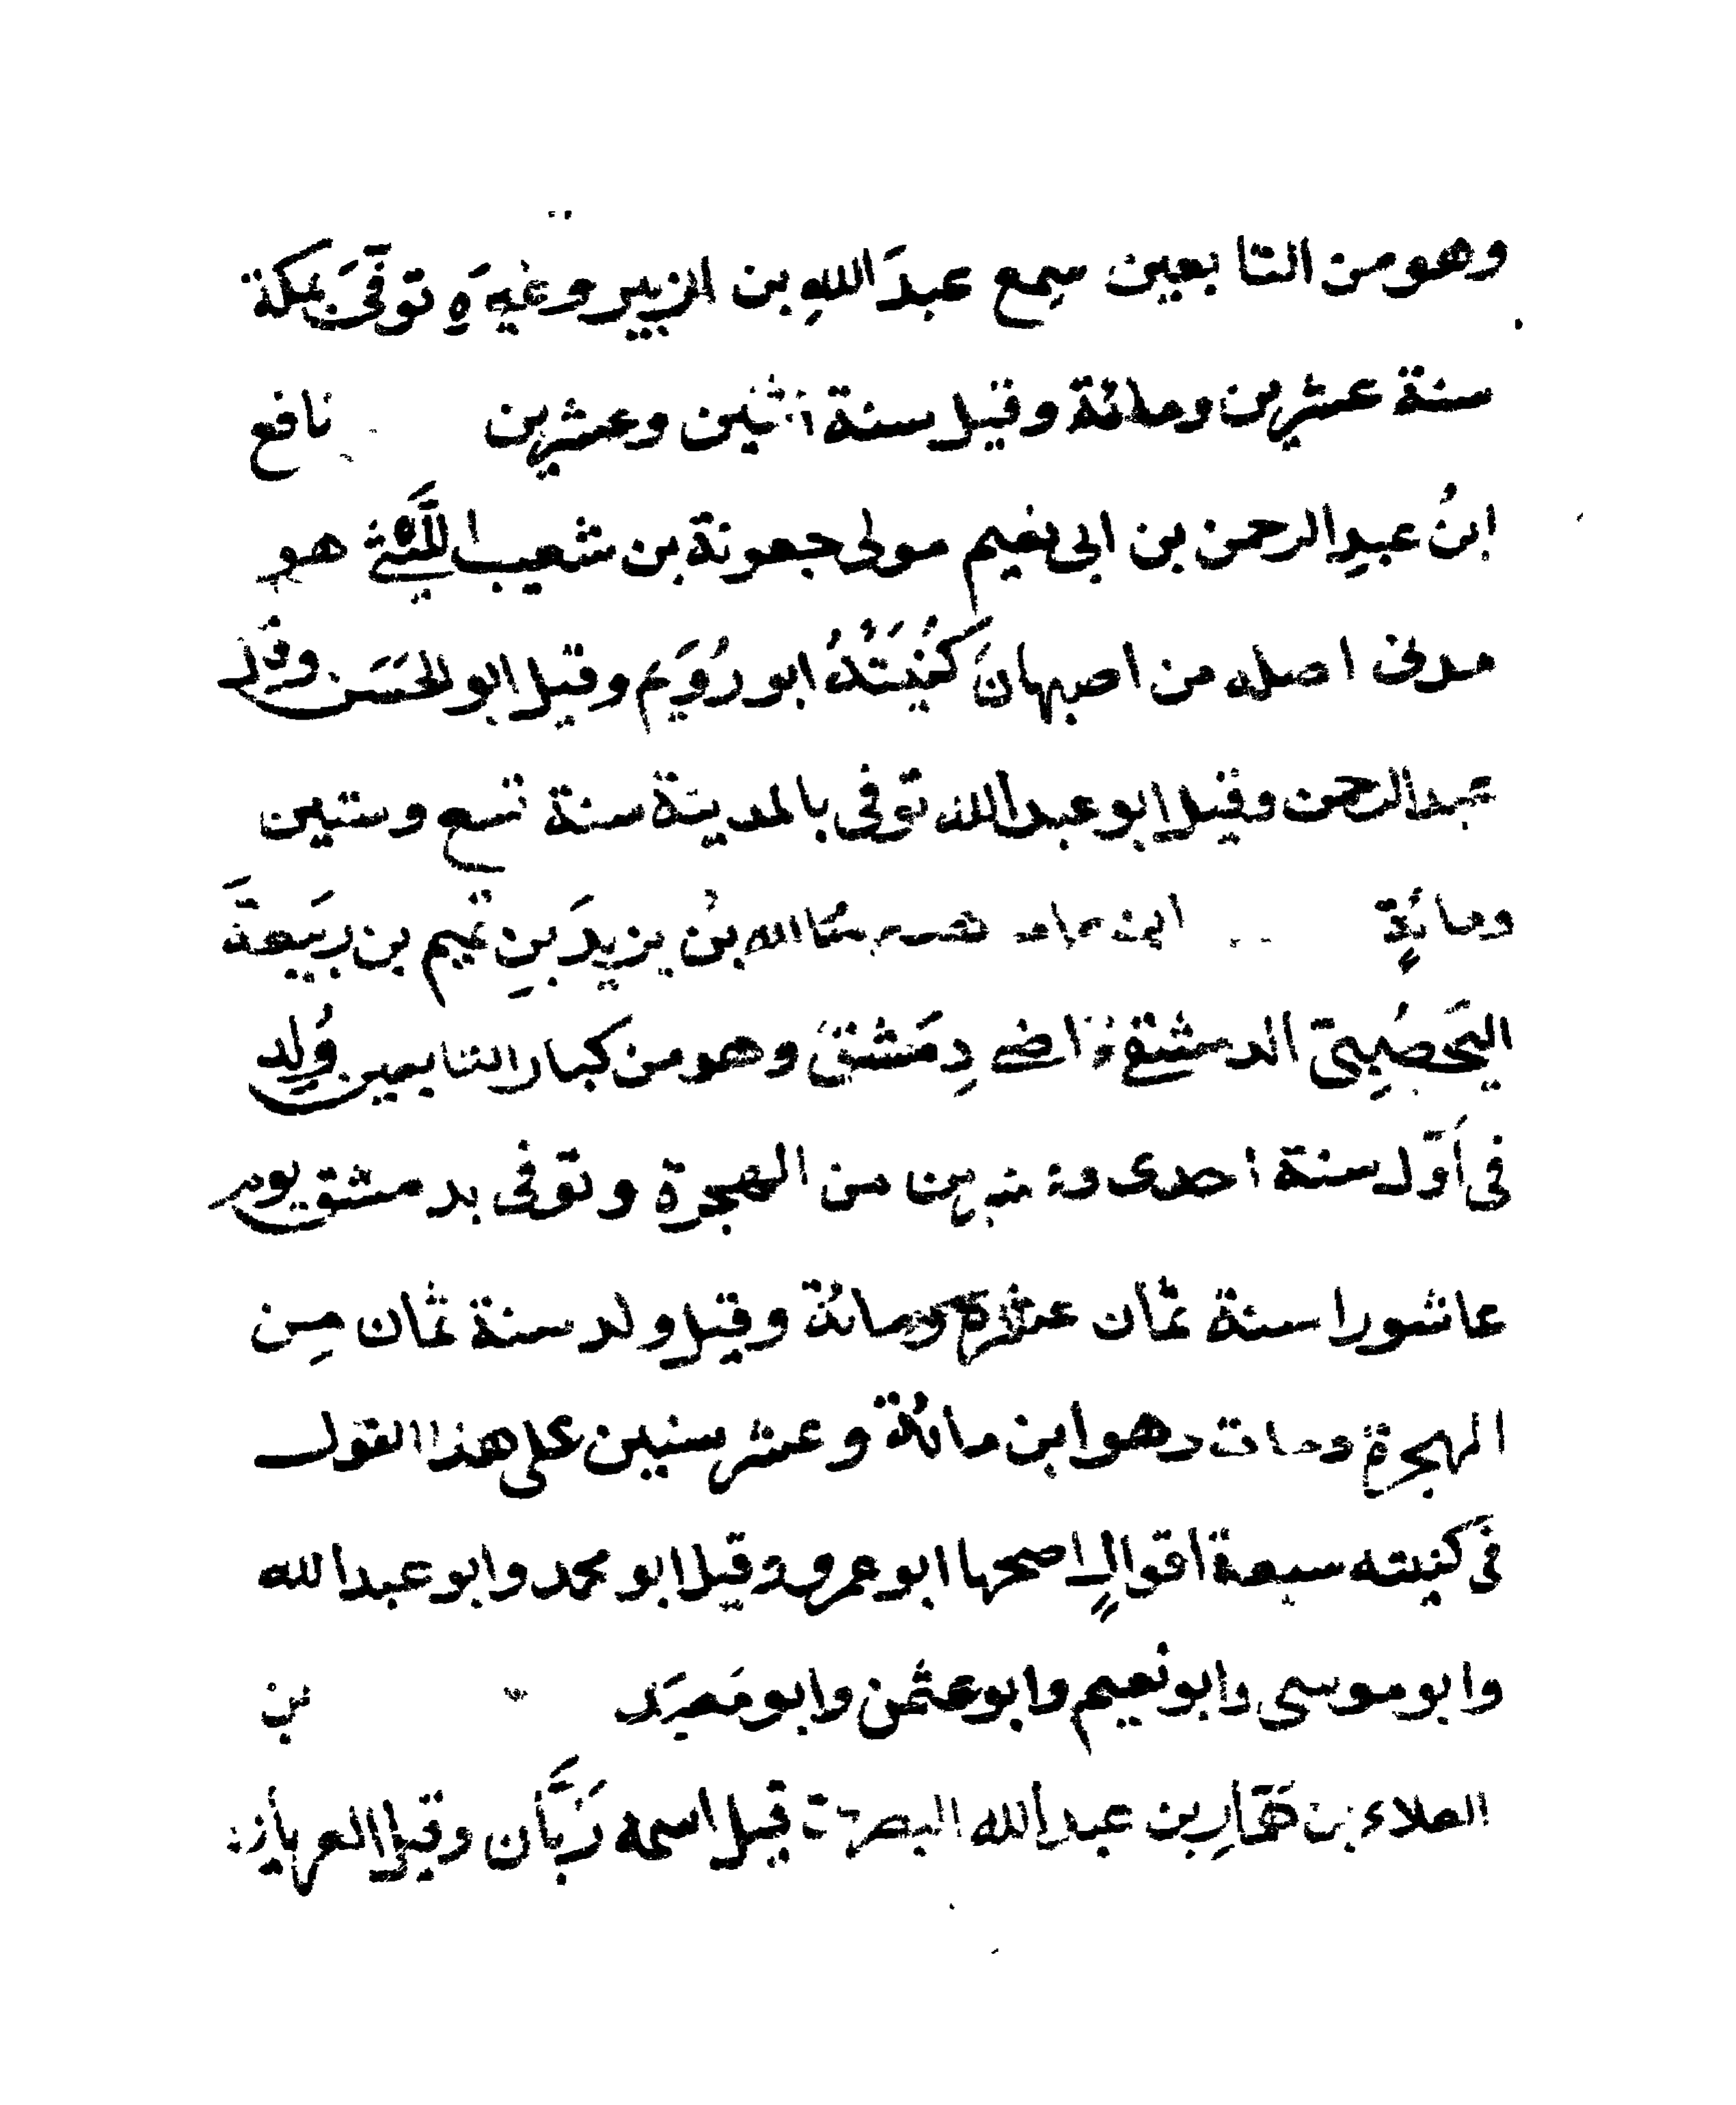 وهو من التابعين سمع عبدَ اللهِ بن الزبير وغيرَهِ توفّىَ بمكة
سنة عشرين ومائة وقيل سنة اثنين وعشرين نافع
ابنُ عبدِ الرحمن بن ابى نعيم مولى جعونة بن شعيب اللَّيثى هو
مدنى اصله من اصبهانَ كُنيَتُهُ ابو رُوَيم وقيل ابو الحَسَن وقيل
عبد الرحمن وقيل ابو عبد الله توفى بالمدينة سنة تسع وستين
ومائةٍ ابن عامر عبد الله بن يزيدَ بنِ تميم بن ربَيعةَ
اليَحصُبِىّ الدمشقى قاضى دِمَشقَ وهو من كبار التابعين وُلِد
فى اَوّل سنة احدى وعشرين من الهجرة وتوفى بدمشق يوم
عاشورا سنة ثمان عشرة ومائة وقيل ولد سنة ثمان مِن
الهجرة ومات وهو ابن مائة وعشر سنين على هذا القول
فى كنيته سبعة اقوالٍ اصحها ابو عمرو وقيل ابو محمد وابو عبد الله
وابو موسى وابو نعيم وابو عثمن وابو مَعبَد بن
العلاء بن عَمّارِ بن عبد الله البصرى قيل اسمه زَبَّان وقيل العريان